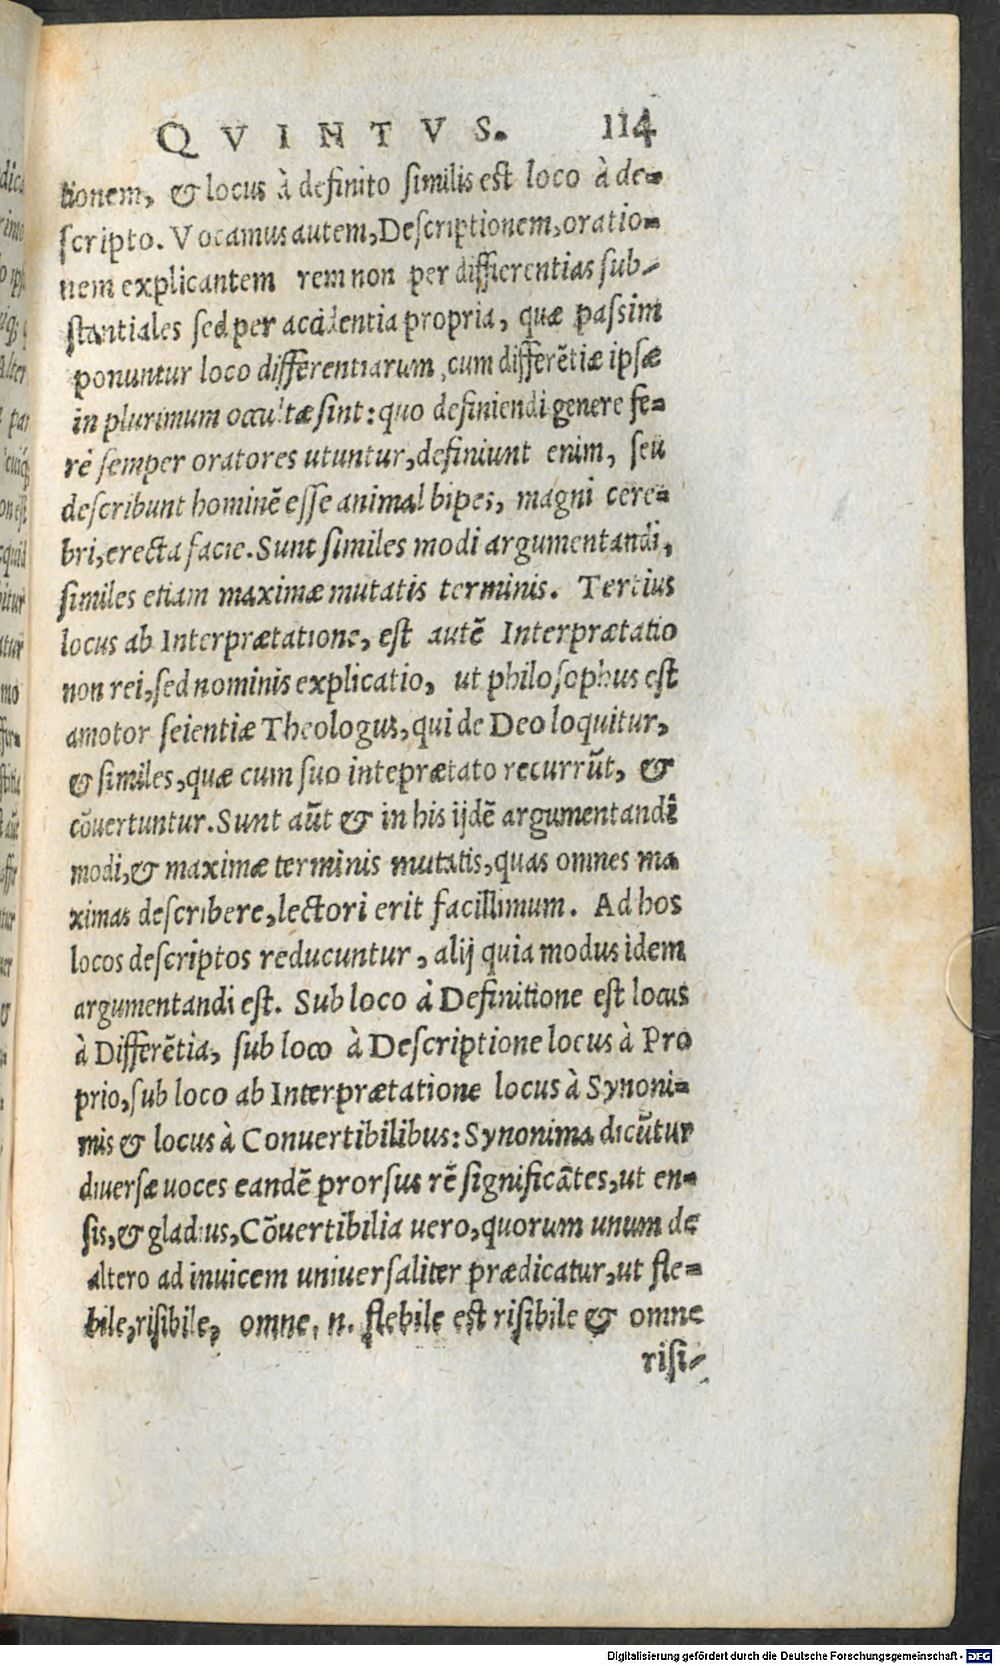 QVINTVS. 114
tionem, & locus à definito similis est loco à de=
scripto. Vocamus autem, Descriptionem, oratio=
nem explicantem rem non per differentias sub-
stantiales sed per accidentia propria, quæ passim
ponuntur loco differentiarum, cum differẽtiæ ipsæ
in plurimum occultæ sint: quo definiendi genere fe=
rẽ semper oratores utuntur, definiunt enim, seu
describunt hominẽ esse animal bipes, magni cere=
bri, erecta facie. Sunt similes modi argumentandi,
similes etiam maximæ mutatis terminis. Tertius
locus ab Interprætatione, est autẽ Interprætatio
non rei, sed nominis explicatio, ut philosophus est
amotor seientiæ Theologus, qui de Deo loquitur,
& similes, quæ cum suo inteprætato recurrũt, &
cõuertuntur. Sunt aũt & in his ijdẽ argumentandi
modi, & maximæ terminis mutatis, quas omnes ma
ximas describere, lectori erit facillimum. Ad hos
locos descriptos reducuntur, alij quia modus idem
argumentandi est. Sub loco à Definitione est locus
à Differẽtia, sub loco à Descriptione locus à Pro
prio, sub loco ab Interprætatione locus à Synoni=
mis & locus à Conuertibilibus: Synonima dicũtur
diuersæ uoces eandẽ prorsus rẽ significãtes, ut en=
sis, & gladius, Cõuertibilia uero, quorum unum de
altero ad inuicem uniuersaliter prædicatur, ut fle=
bile, risibile, omne. n. flebile est risibile & omne
risi-
Digitalisierung gefördert durch die Deutsche Forschungsgemeinschaft - DFG